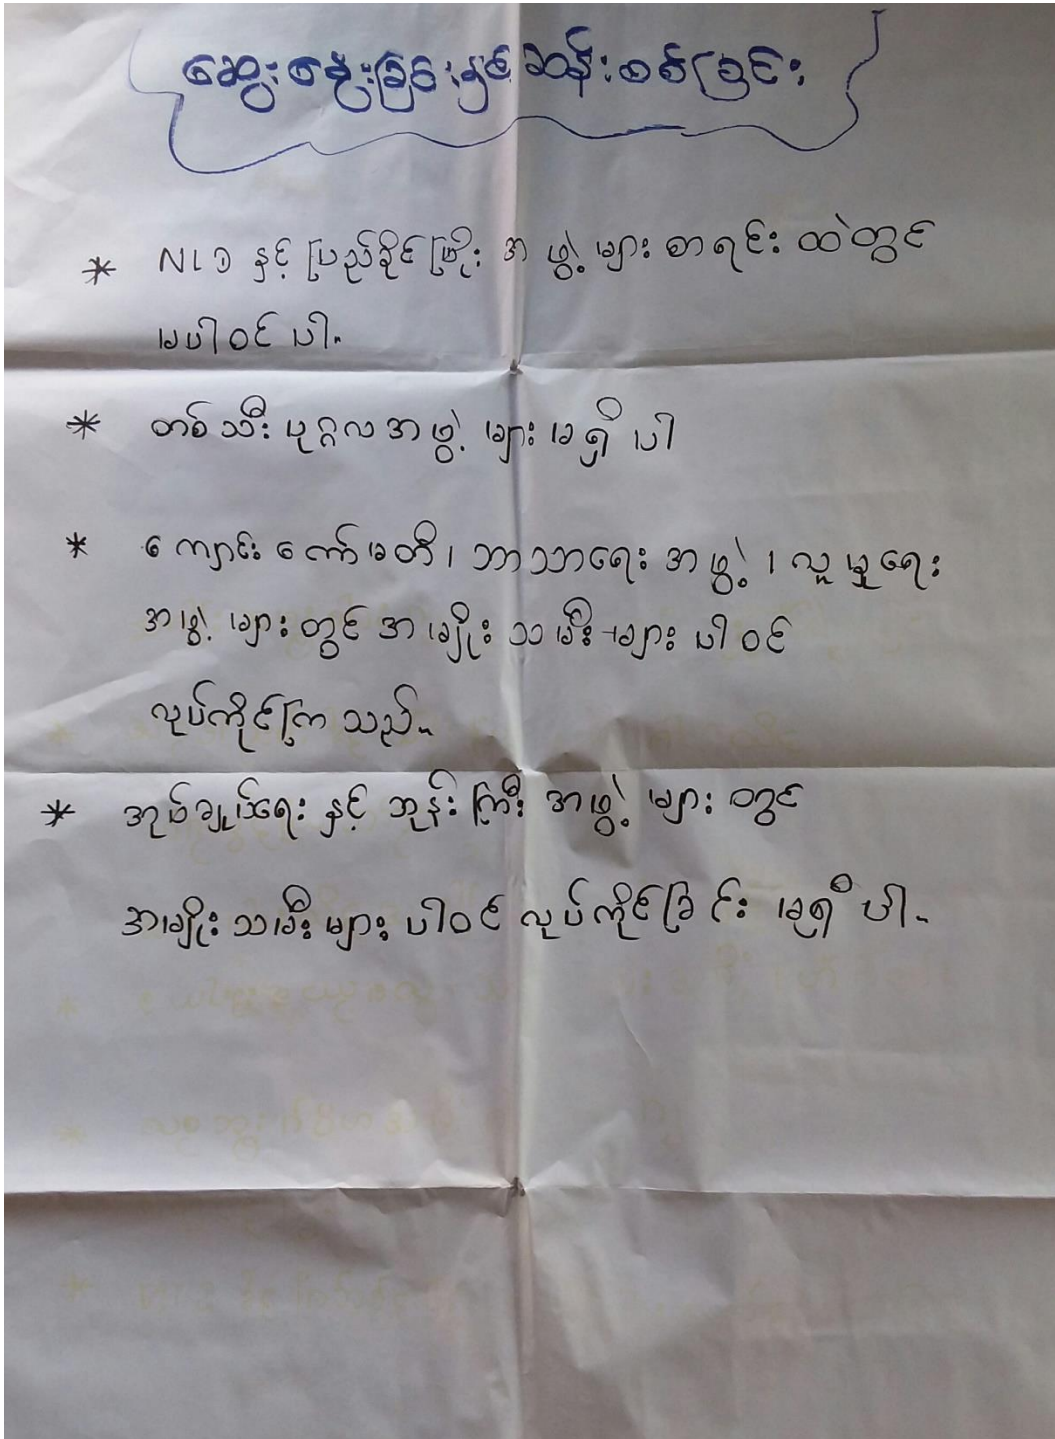 ဆွေးနွေးခြင်းနှင့်ဆန်းစစ်ခြင်း
* NLD နှင့် ပြည်ခိုင်ဖြိုး အဖွဲ့များ စာရင်းထဲတွင်
မပါဝင်ပါ။
* တစ်သီးပုဂ္ဂလအဖွဲ့များ မရှိပါ
* ကျောင်းကော်မတီ၊ ဘာသာရေးအဖွဲ့၊ လူမှုရေး
အဖွဲ့များတွင် အမျိုးသမီးများ ပါဝင်
လုပ်ကိုင်ကြသည်။
* အုပ်ချုပ်ရေးနှင့် ဘုန်းကြီးအဖွဲ့များတွင်
အမျိုးသမီးများ ပါဝင်လုပ်ကိုင်ခြင်း မရှိပါ။